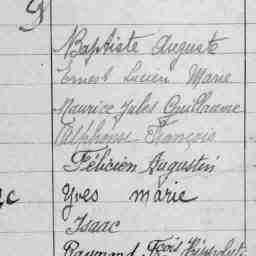 Baptiste Auguste
Ernest Lucien Marie
Maurice Jules Guillaume
Alphonse François
Félicien Augustin
Yves Marie
Isaac
Raymond